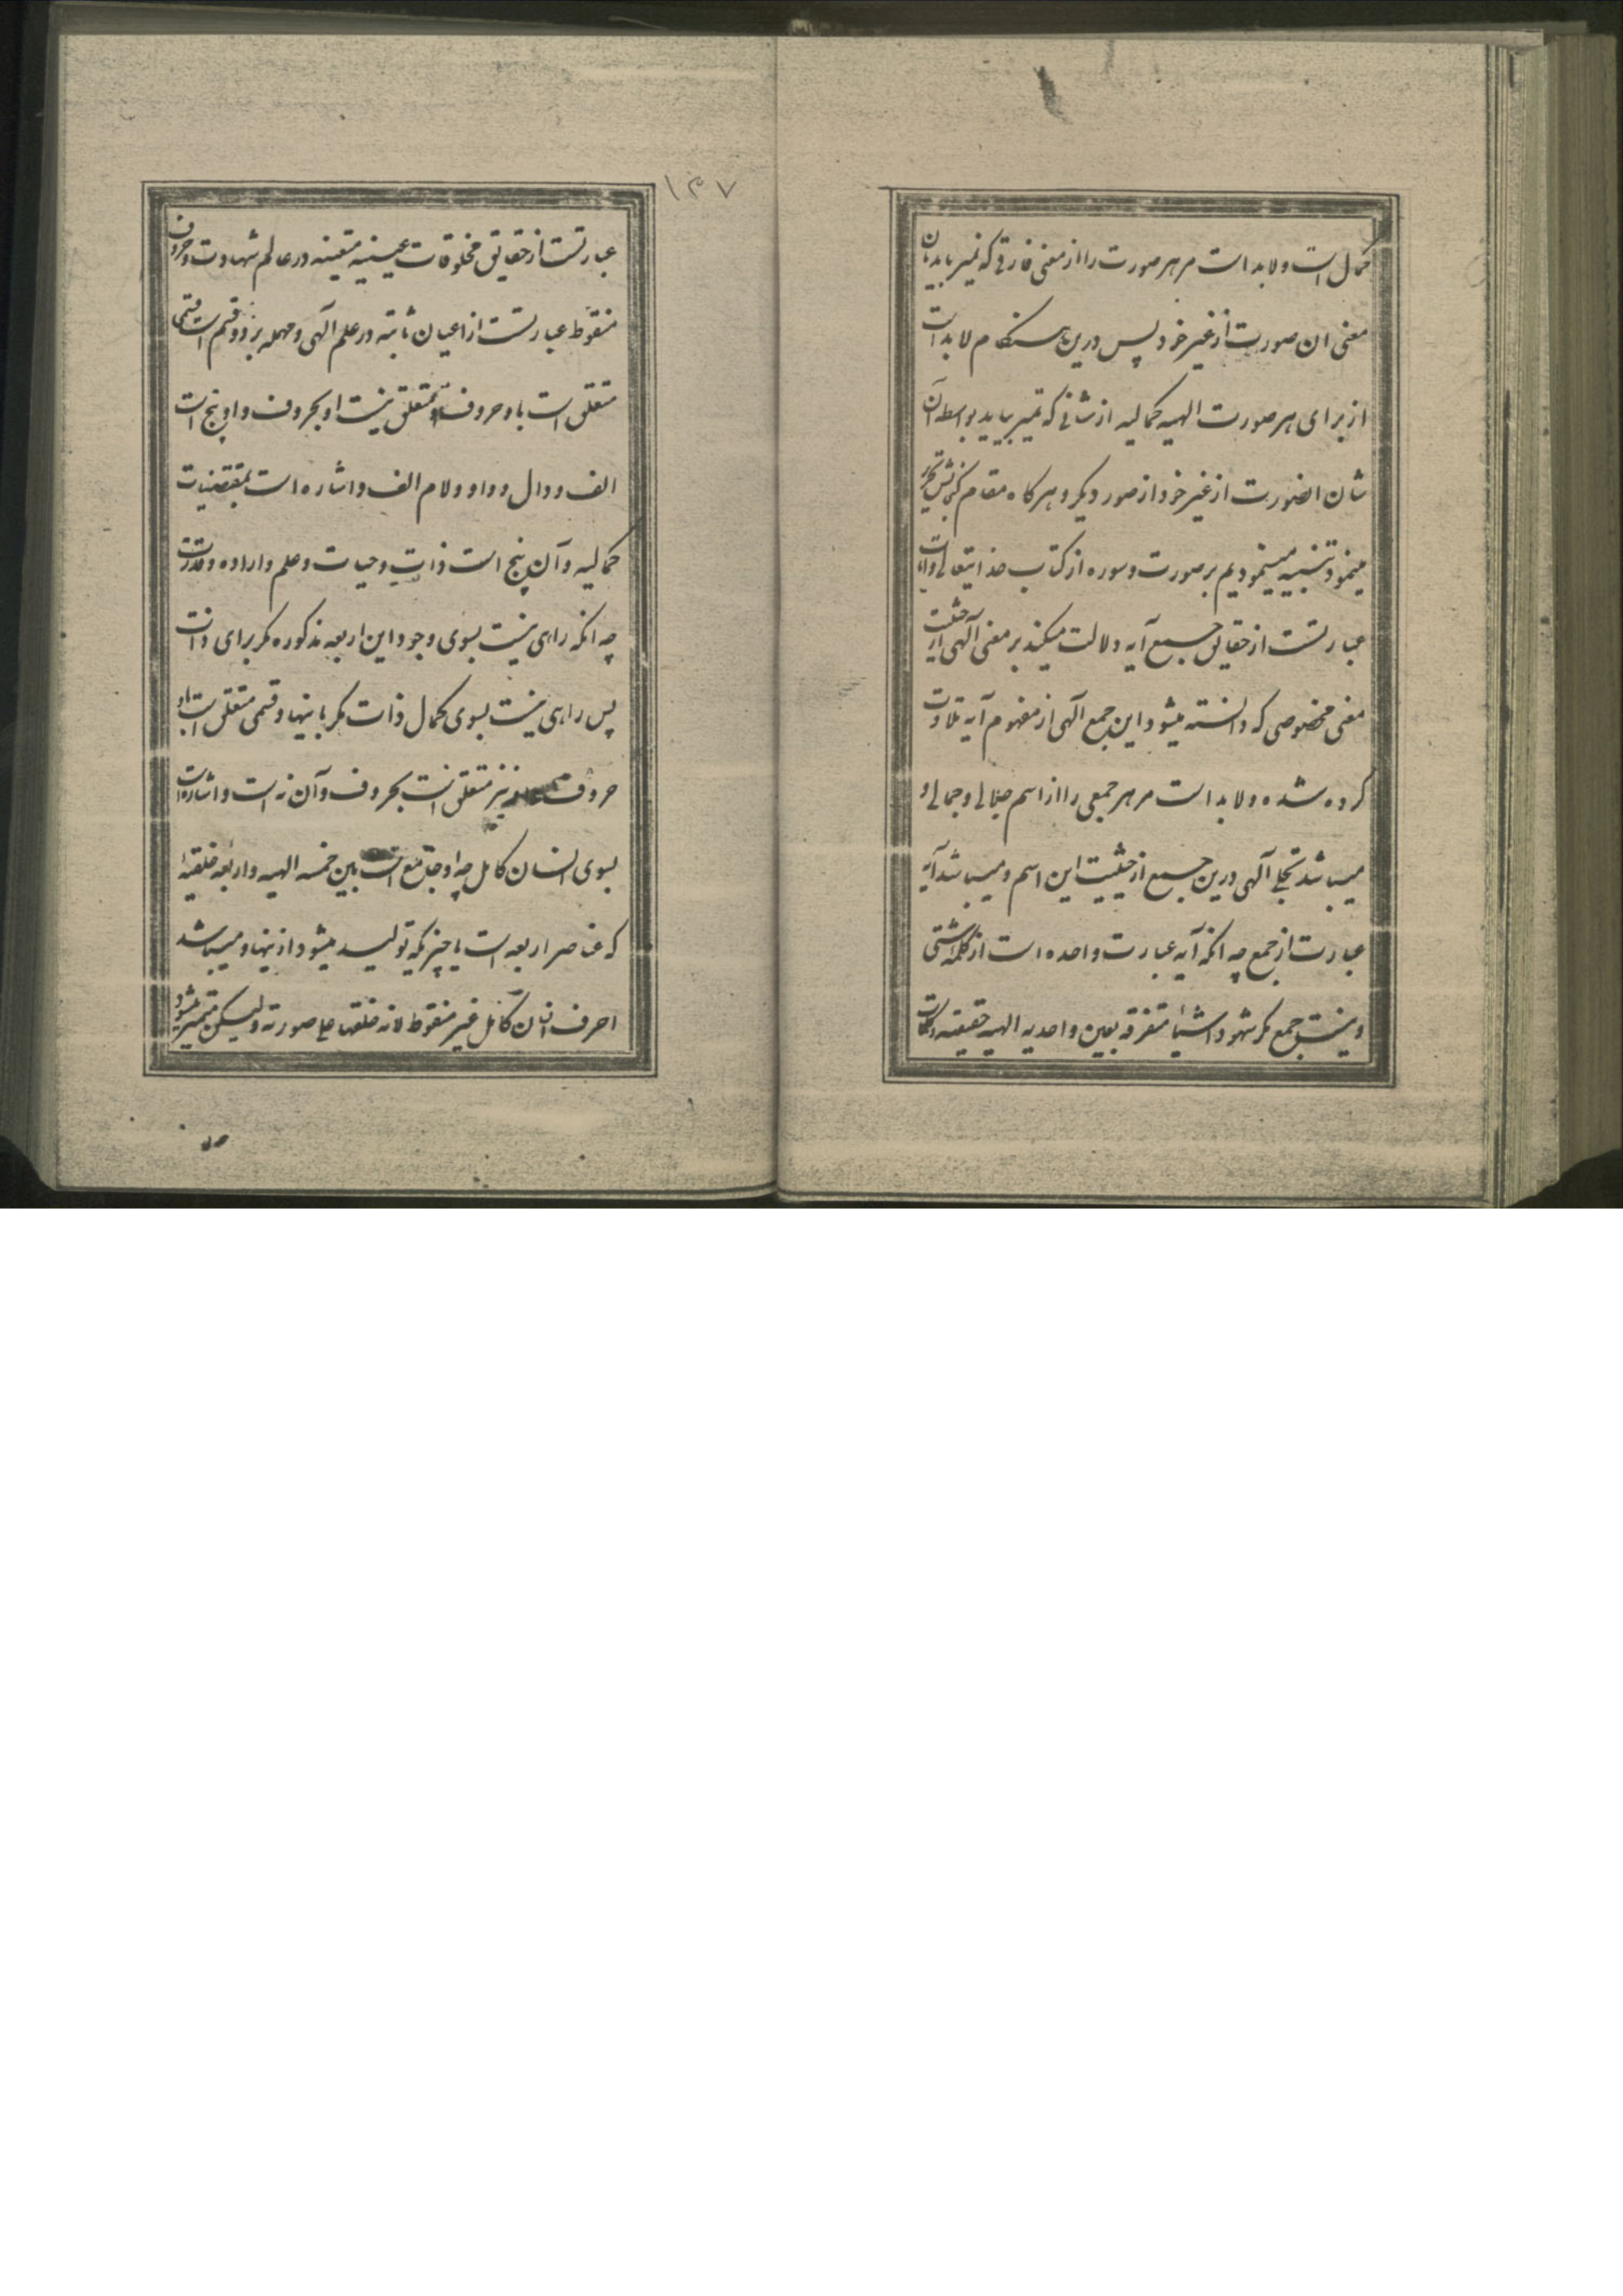 کمال است ولابد است مر هر صورت را از معنی فارقی که تمیز یابد بآن
معنی ان صورت از غیر خود پس درین هنکام لابد است
از برای هر صورت الهیه کمالیه از شانی که تمیز بیابد بواسطه آن
شان انصورت از غیر خود از صور دیکر و هر کاه مقام کنجایش تحریر
مینمود تنبیه مینمودیم بر صورت و سوره از کتاب خدایتعالی و ایات
عبارتست از حقایق جمیع آیه دلالت میکند بر معنی آلهی از حیثیت
معنی مخصوصی که دانسته میشود این جمع آلهی از مفهوم آیه تلاوت
کرده شده ولابد است مر هر جمعی را از اسم جلالی و جمالی و
میباشد تجلی آلهی درین جمیع از حیثیت این اسم و میباشد آیه
عبارت از جمع چه انکه آیه عبارت واحده است از کلمات شتی
ونیست جمع مکر شهود اشیاء متفرقه بعین واحدیه الهیه حقیقیه و کلمات
۱۳۷
عبارتست از حقایق مخلوقات عینیه متعینه در عالم شهادت و حروف
منقوط عبارتست از اعیان ثابته در علم آلهی و مهمله بر دو قسم است قسمی
متعلق است باو حروف و او متعلق نیست او بحروف و او پنج است
الف و دال و واو و لام الف و اشاره است بمقتضیات
کمالیه و آن پنج است ذات و حیات و علم و اراده و قدرت
چه انکه راهی نیست بسوی وجود این اربعه مذکوره مکر برای ذات
پس راهی نیست بسوی کمال ذات مکر باینها و قسمی متعلق است باو
حروف و او نیز متعلق است بحروف و آن نه است و اشاره است
بسوی انسان کامل چه او جامع است بین خمسه الهیه و اربعه خلقیه
که عناصر اربعه است یا چیزیکه تولید میشود از ینها و میباشد
احرف انسان کامل غیر منقوط لانه خلقها علی صورته و لیکن متمیز میشود